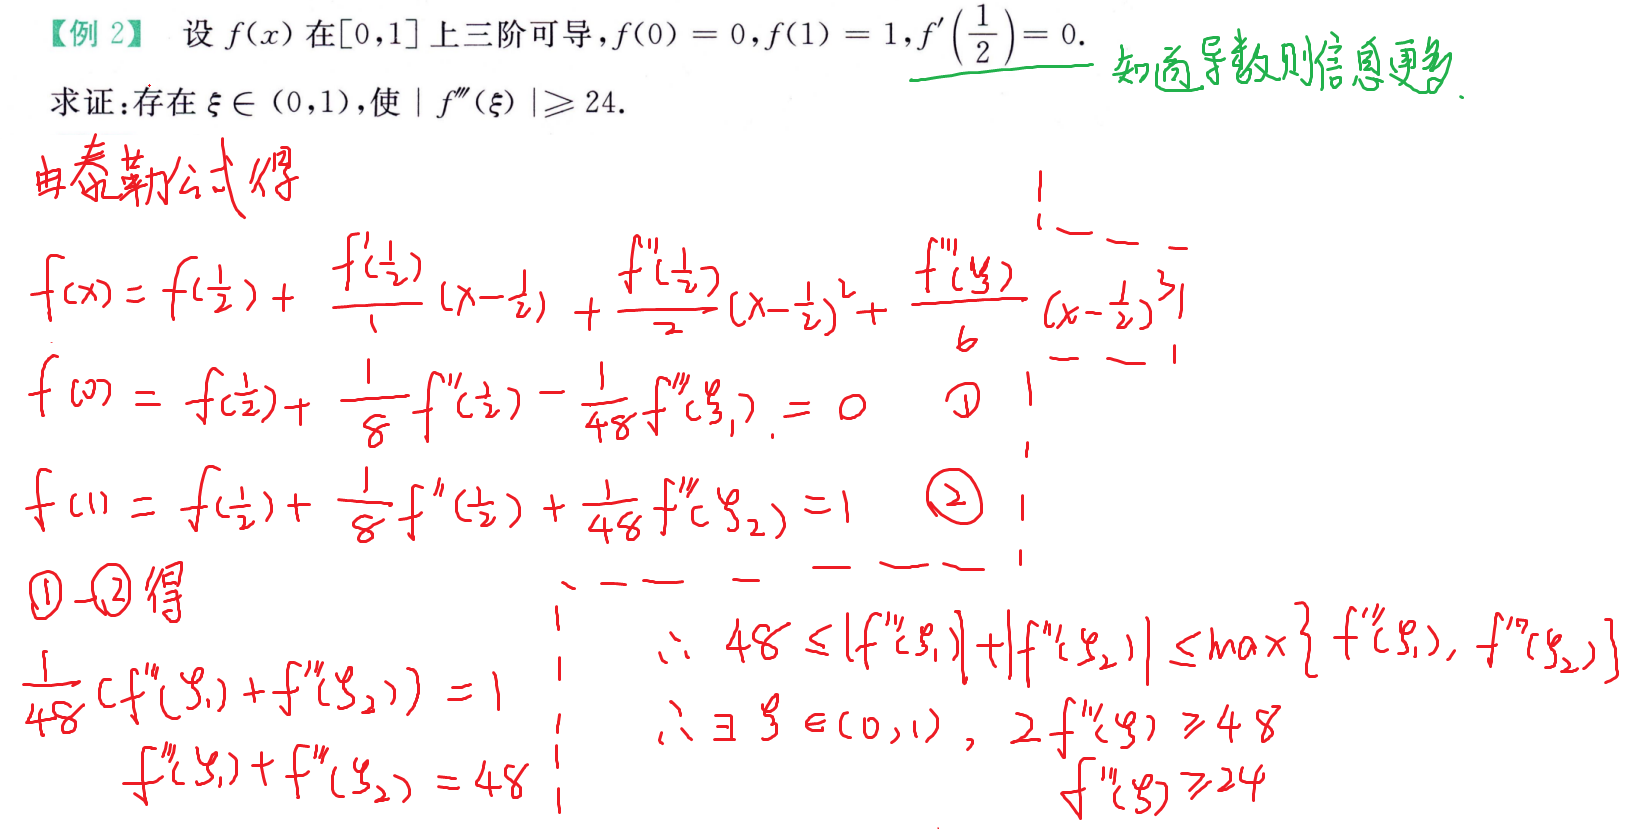 【例 2】 设 f(x) 在[0,1] 上三阶可导,f(0) = 0,f(1) = 1,f′(1/2) = 0.
知道导数则信息更多.
求证:存在 ξ ∈ (0,1),使 | f‴(ξ) | ⩾ 24.
由泰勒公式得
f(x) = f(1/2) + f'(1/2)/1 (x-1/2) + f''(1/2)/2 (x-1/2)² + f'''(ξ)/6 (x-1/2)³
f(0) = f(1/2) + 1/8 f''(1/2) - 1/48 f'''(ξ₁) = 0 ①
f(1) = f(1/2) + 1/8 f''(1/2) + 1/48 f'''(ξ₂) = 1 ②
①-② 得
1/48 (f'''(ξ₁) + f'''(ξ₂)) = 1
f'''(ξ₁) + f'''(ξ₂) = 48
∴ 48 ≤ |f'''(ξ₁)| + |f'''(ξ₂)| ≤ max{ f'''(ξ₁), f'''(ξ₂)}
∴ ∃ ξ ∈ (0,1), 2f'''(ξ) ⩾ 48
f'''(ξ) ⩾ 24